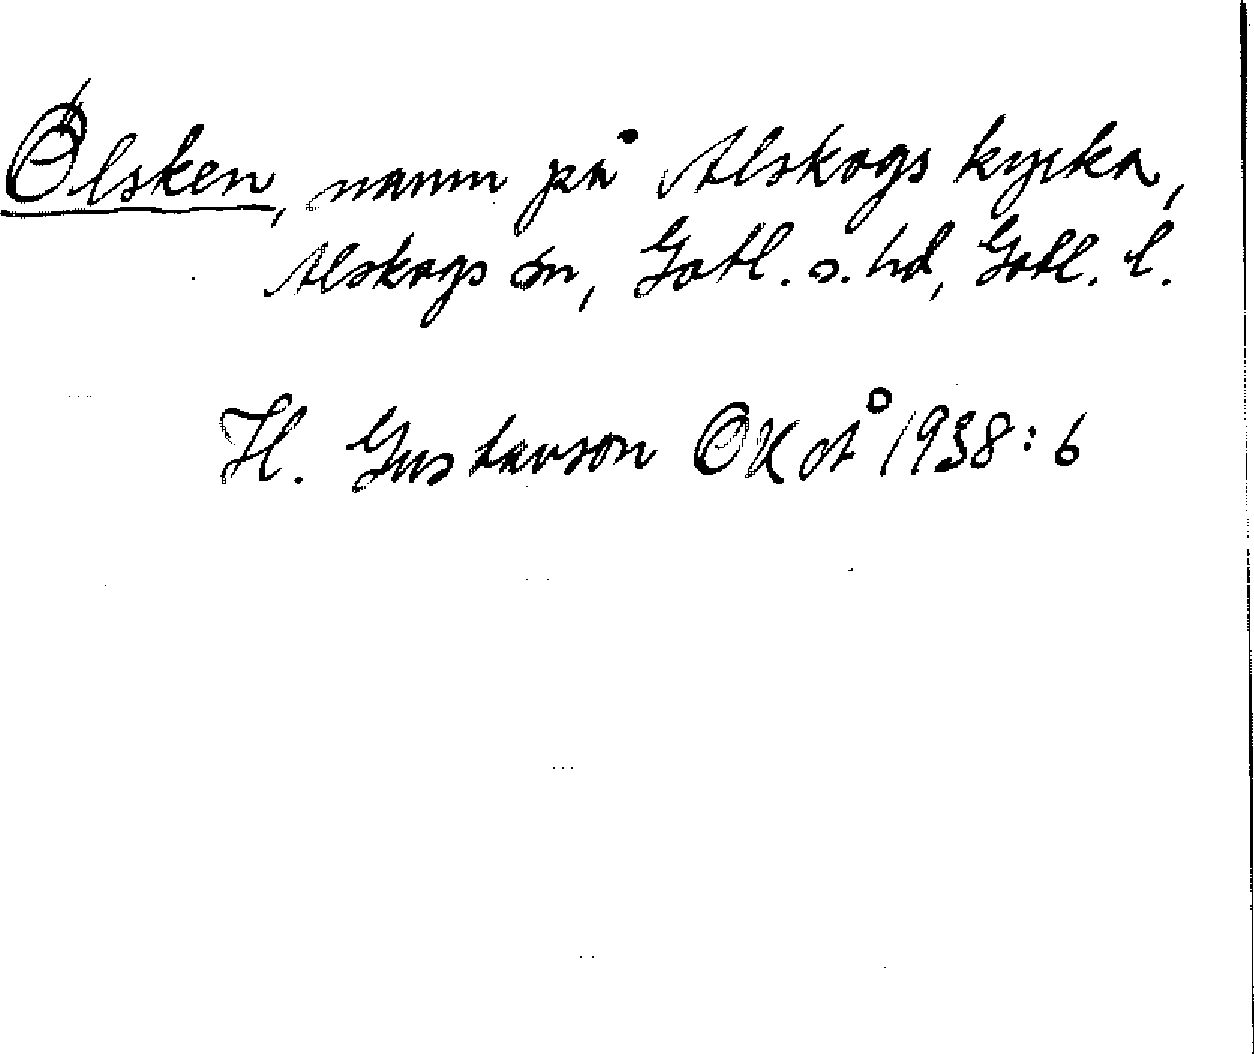 Ölsken, namn på Alskogs kyrka,
Alskogs sn, Gotl. s. hd, Gotl. l.
H. Gustavson OKåt 1938:6